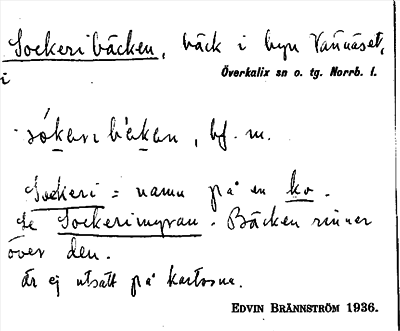 Sockeribäcken, bäck i byn Vännäset,
i Överkalix sn o. tg. Norrb. l.
sókεri bὲkεn, bf. m.
Sockeri = namn på en ko.
Se Sockerimyran. Bäcken rinner
över den.
Är ej utsatt på kartorna.
EDVIN BRÄNNSTRÖM 1936.